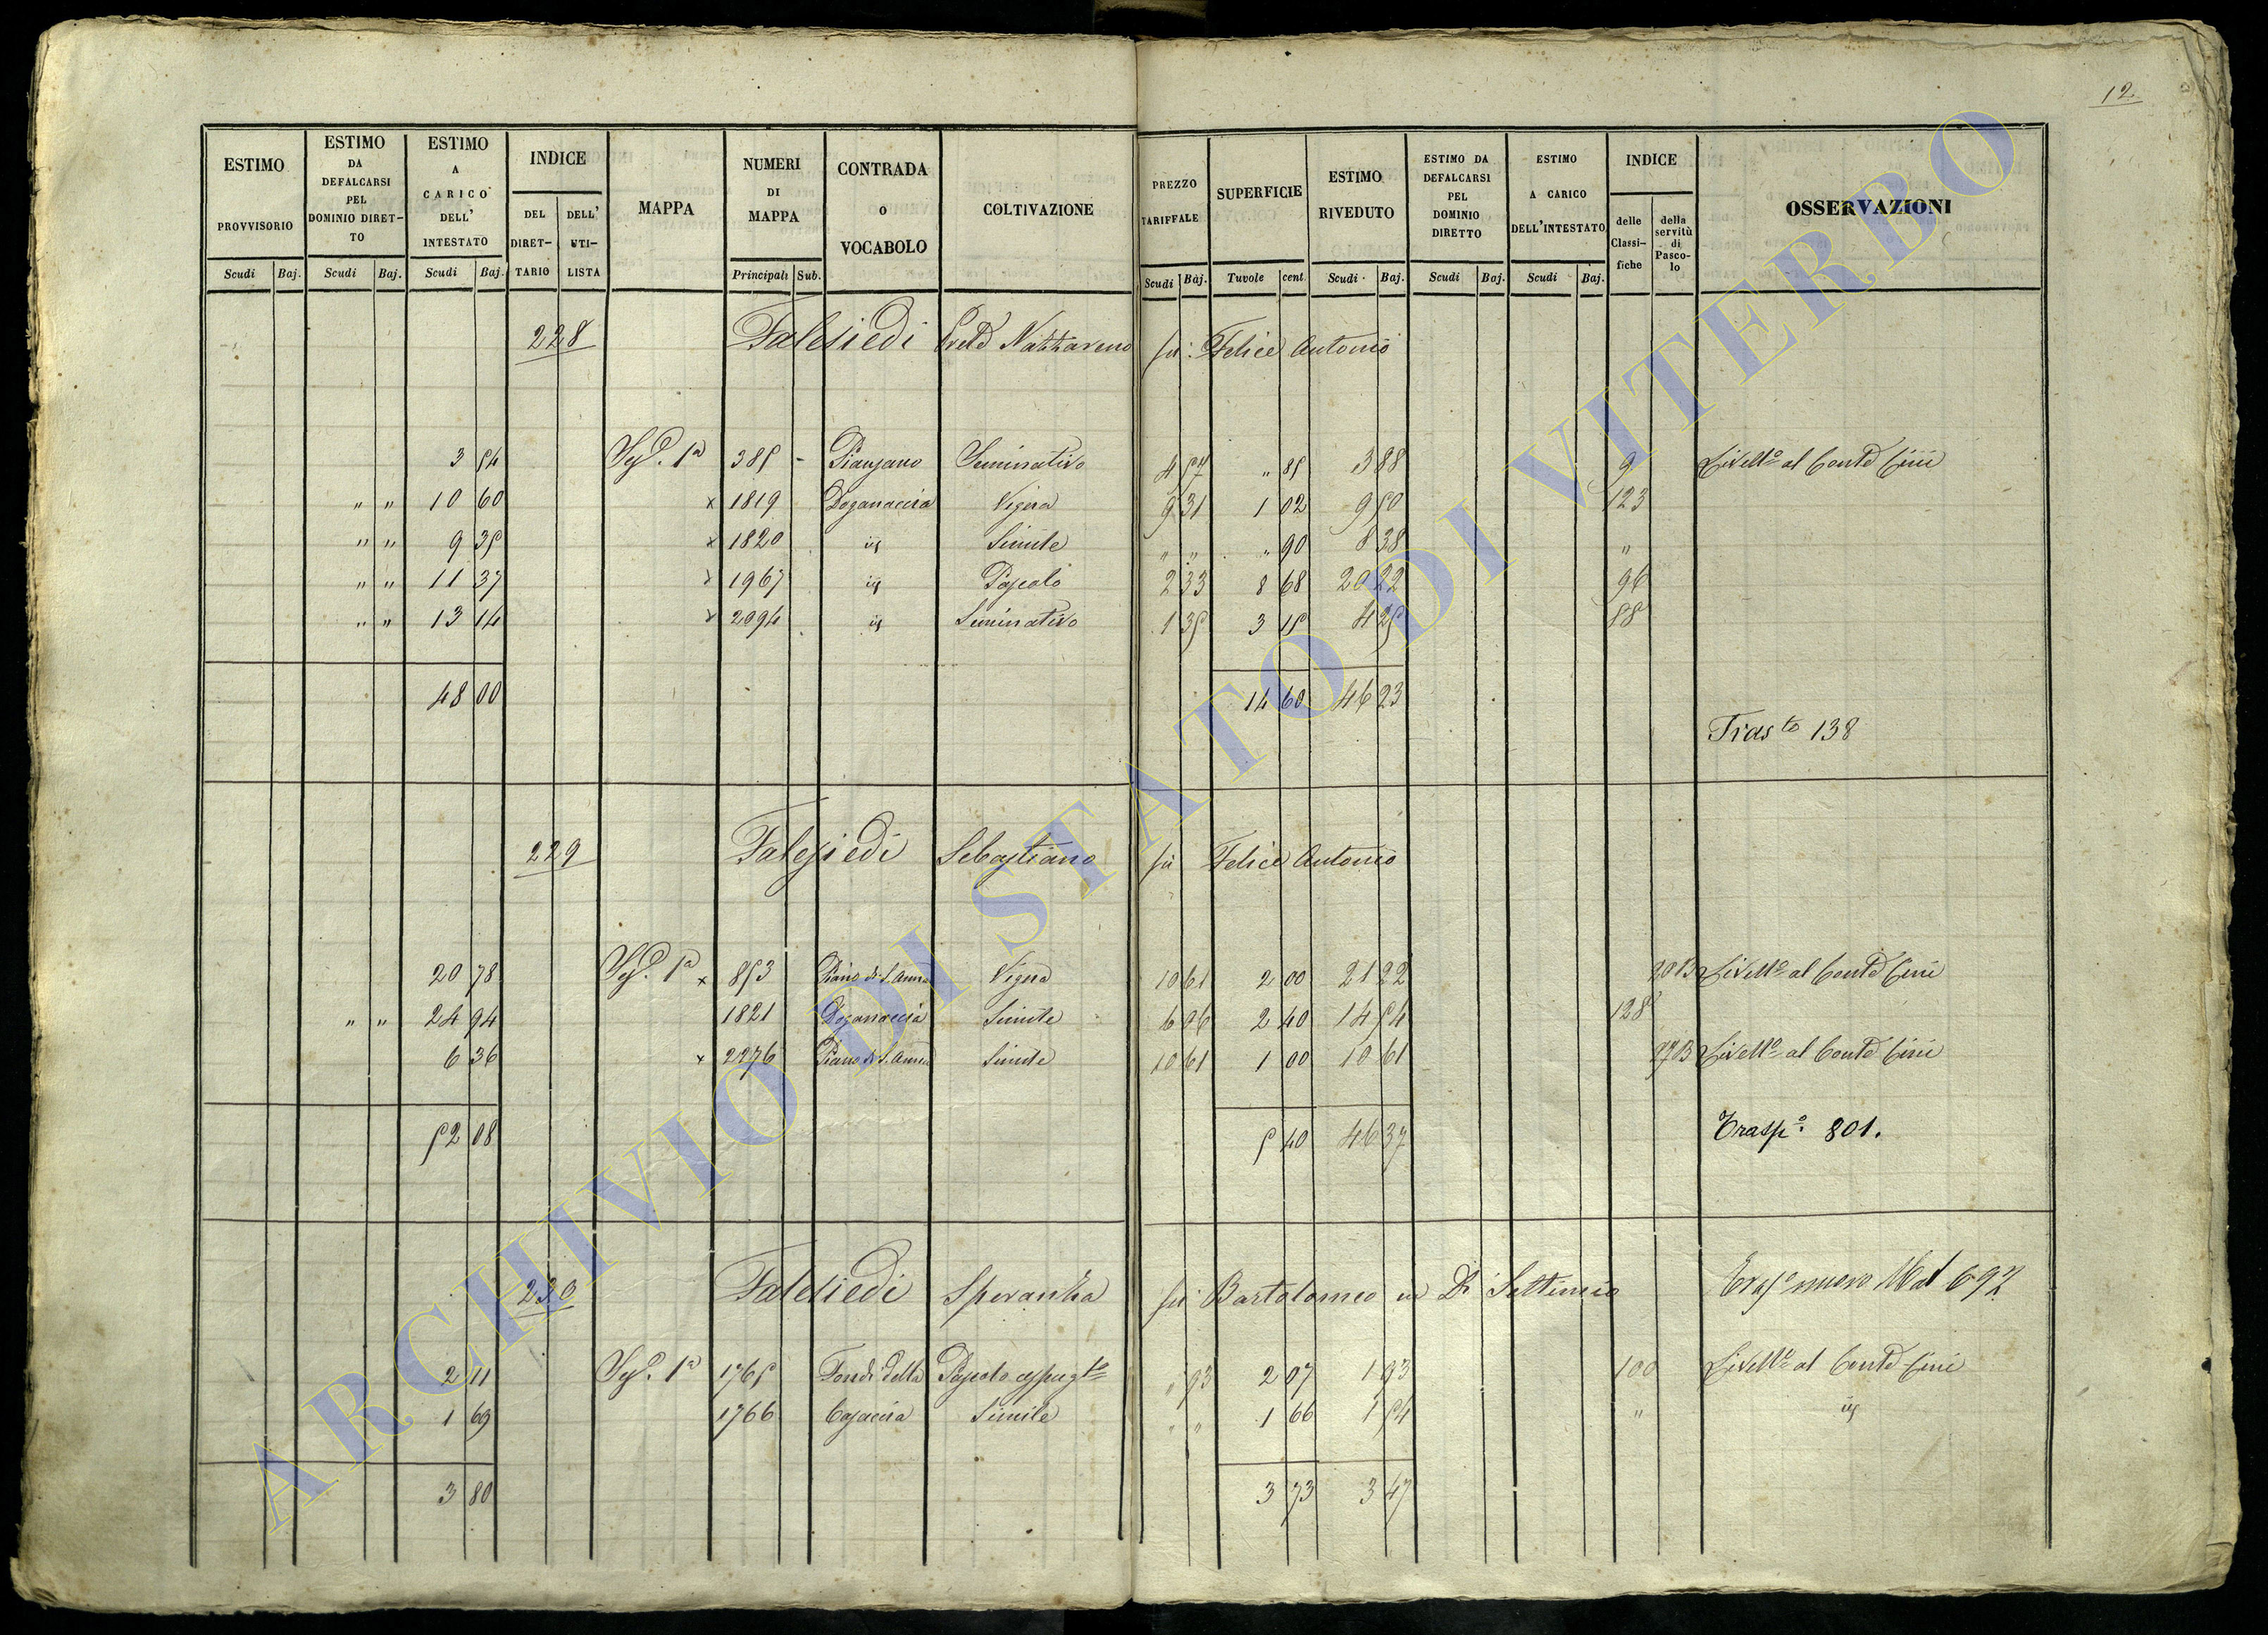 12
ESTIMO PROVVISORIO Scudi Baj.
ESTIMO DA DEFALCARSI PEL DOMINIO DIRETTO Scudi Baj.
ESTIMO A CARICO DELL' INTESTATO Scudi Baj.
INDICE DEL DIRETTARIO DELL' UTILISTA
MAPPA
NUMERI DI MAPPA Principali Sub.
CONTRADA o VOCABOLO
COLTIVAZIONE
PREZZO TARIFFALE Scudi Baj.
SUPERFICIE Tavole cent.
ESTIMO RIVEDUTO Scudi Baj.
ESTIMO DA DEFALCARSI PEL DOMINIO DIRETTO Scudi Baj.
ESTIMO A CARICO DELL'INTESTATO Scudi Baj.
INDICE delle Classifiche della servitù di Pascolo
OSSERVAZIONI
228 Falesiedi Nazzareno fu: Felice Antonio
3 54 Sez. 1a 385 - Pianzano Seminativo 4 57 " 85 3 88 9 Livello al Conte Cini
" " 10 60 x 1819 Doganaccia Vigna 9 31 1 02 9 50 123
" " 9 35 x 1820 id Simile " " " 90 8 38 "
" " 11 37 x 1967 id Pascolo 2 33 8 68 20 22 96
" " 13 14 x 2094 id Seminativo 1 35 3 15 4 25 88
48 00 14 60 46 23
Tras.to 138
229 Falesiedi Sebastiano fu Felice Antonio
20 78 Sez. 1a x 853 Piano di S. Anna Vigna 10 61 2 00 21 22 Livello al Conte Cini
" " 24 94 1821 Doganaccia Simile 6 06 2 40 14 54 128
6 36 x 2276 Piano di S. Anna Simile 10 61 1 00 10 61 Livello al Conte Cini
52 08 5 40 46 37
Trasp.o 801.
230 Falesiedi Speranza fu: Bartolomeo in Di Settimio Trasp.o nuovo 697
2 11 Sez. 1a 1765 Fondi della Pascolo cespug.to " 93 2 07 1 93 100 Livello al Conte Cini
1 69 1766 Casaccia Simile " " 1 66 1 54 " id
3 80 3 73 3 47
ARCHIVIO DI STATO DI VITERBO